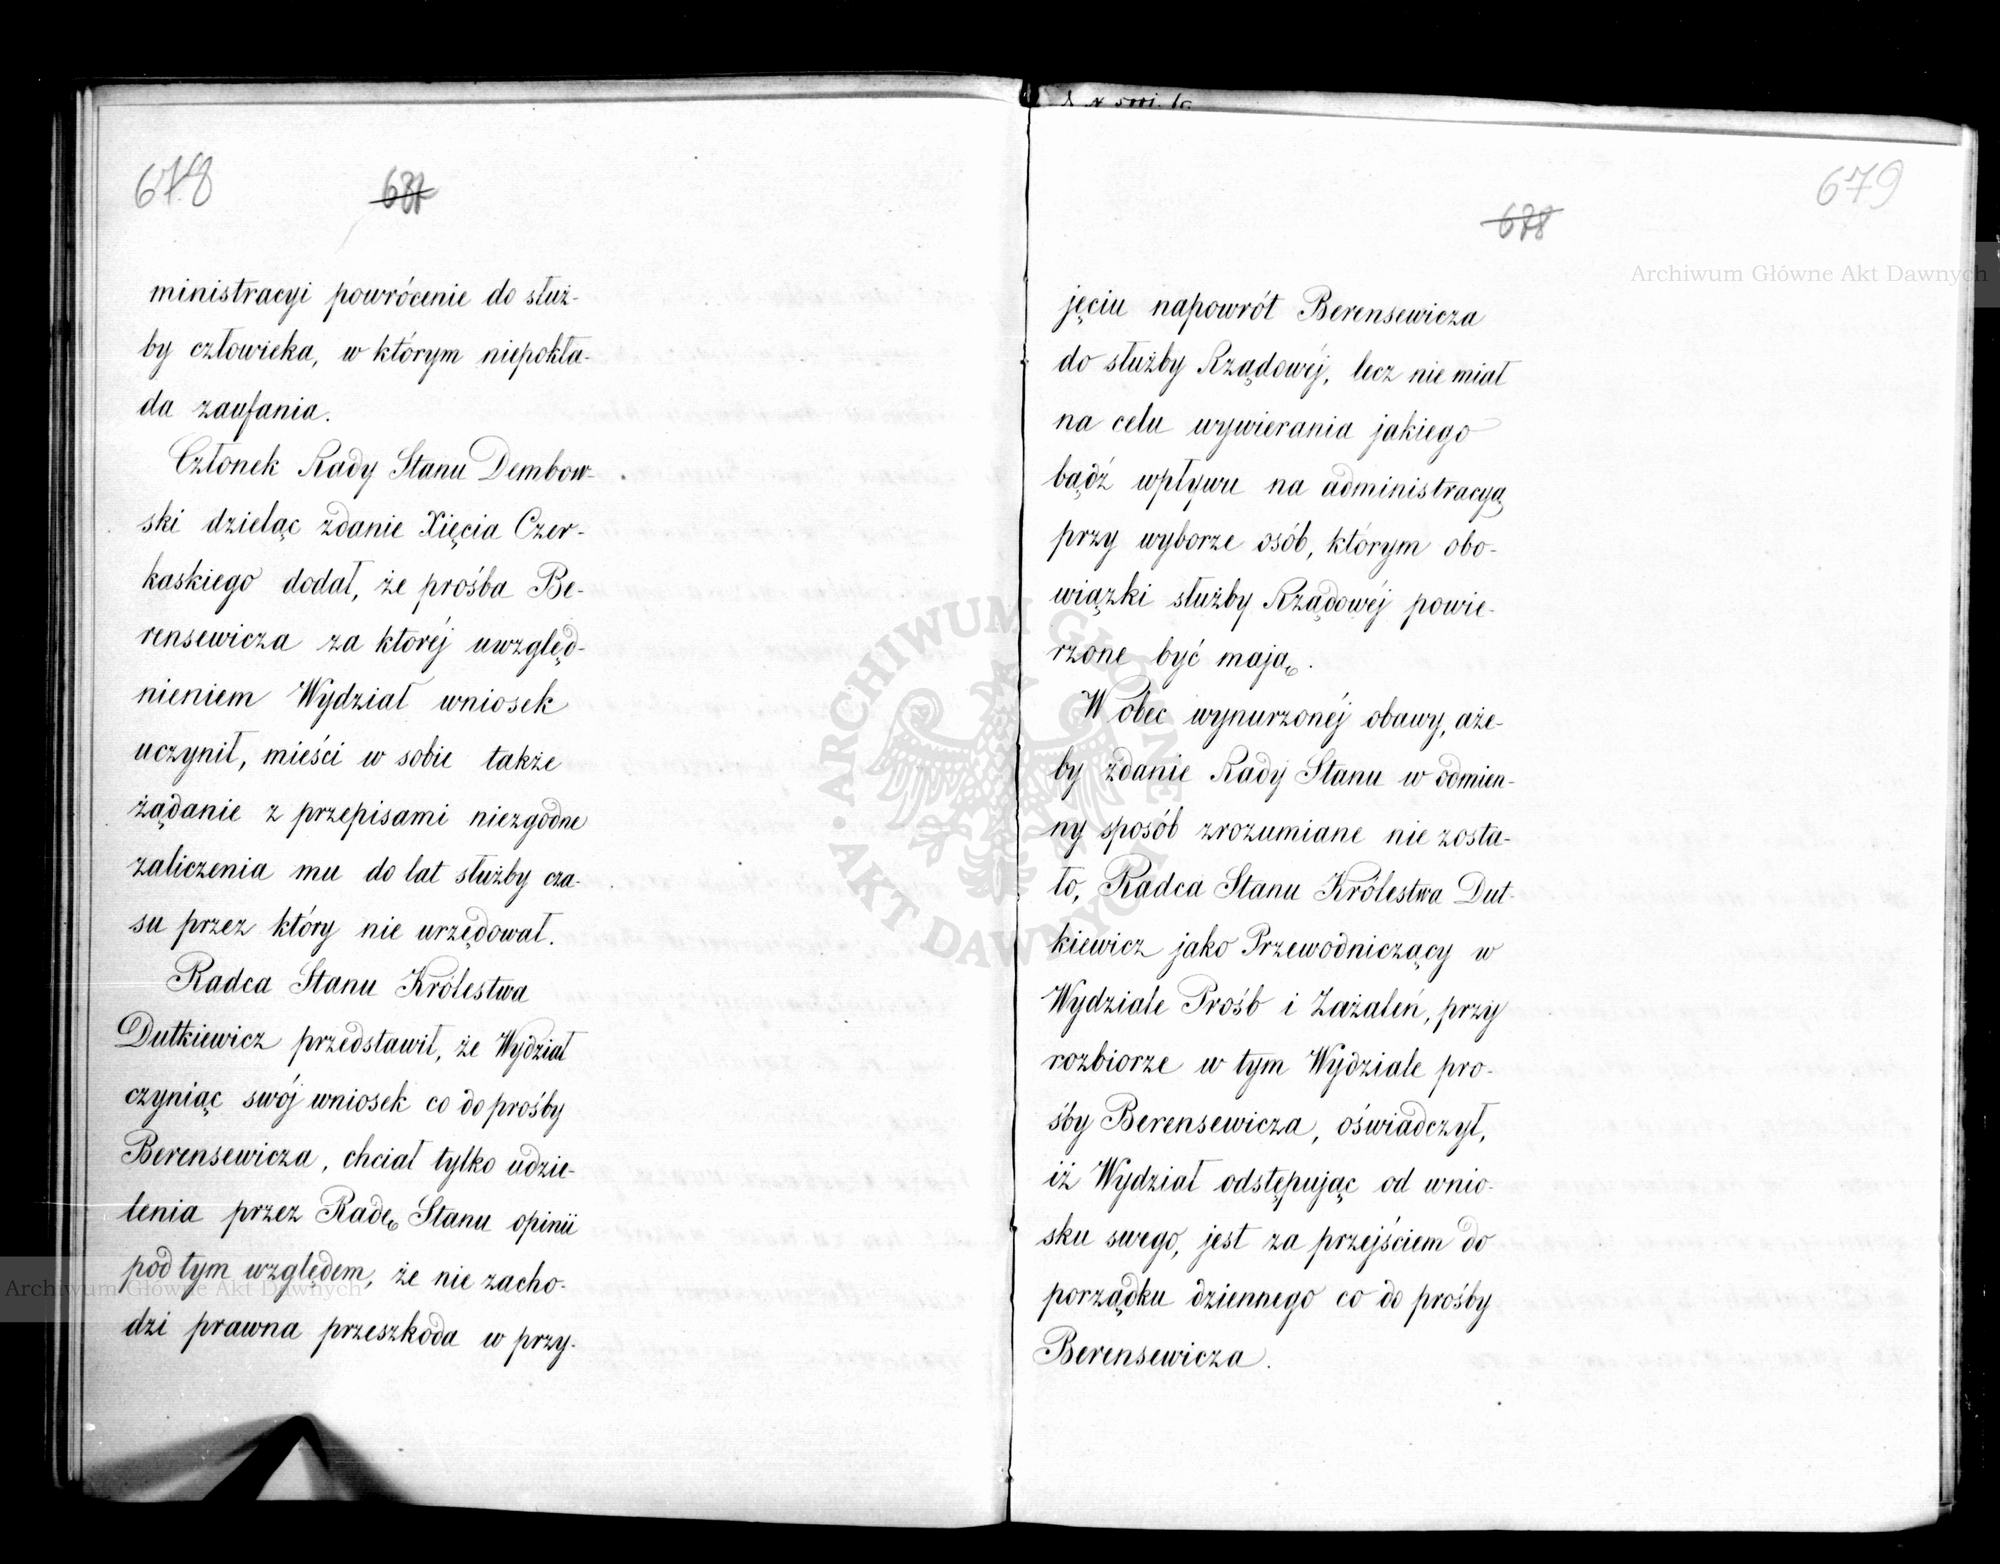 678
ministracyi powrócenie do służ-
by człowieka, w którym niepokła-
da zaufania.
Członek Rady Stanu Dembow-
ski dzieląc zdanie Xięcia Czer-
kaskiego dodał, że prośba Be-
rensewicza za któréj uwzględ-
nieniem Wydział wniosek
uczynił, mieści w sobie także
żądanie z przepisami niezgodne
zaliczenia mu do lat służby cza-
su przez który nie urzędował.
Radca Stanu Królestwa
Dutkiewicz przedstawił, że Wydział
czyniąc swój wniosek co do prośby
Berensewicza, chciał tylko udzie-
lenia przez Radę Stanu opinii
pod tym względem, że nie zacho-
dzi prawna przeszkoda w przy-
679
678
jęciu napowrót Berensewicza
do służby Rządowéj, lecz nie miał
na celu wywierania jakiego
bądź wpływu na administracyą
przy wyborze osób, którym obo-
wiązki służby Rządowéj powie-
rzone być mają.
W obec wynurzonéj obawy, aże-
by zdanie Rady Stanu w odmien-
ny sposób zrozumiane nie zosta-
ło, Radca Stanu Królestwa Dut-
kiewicz jako Przewodniczący w
Wydziale Prośb i Zażaleń, przy
rozbiorze w tym Wydziale pro-
śby Berensewicza, oświadczył,
iż Wydział odstępując od wnio-
sku swego, jest za przejściem do
porządku dziennego co do prośby
Berensewicza.
Archiwum Główne Akt Dawnych
Archiwum Główne Akt Dawnych
ARCHIWUM GŁÓWNE
AKT DAWNYCH